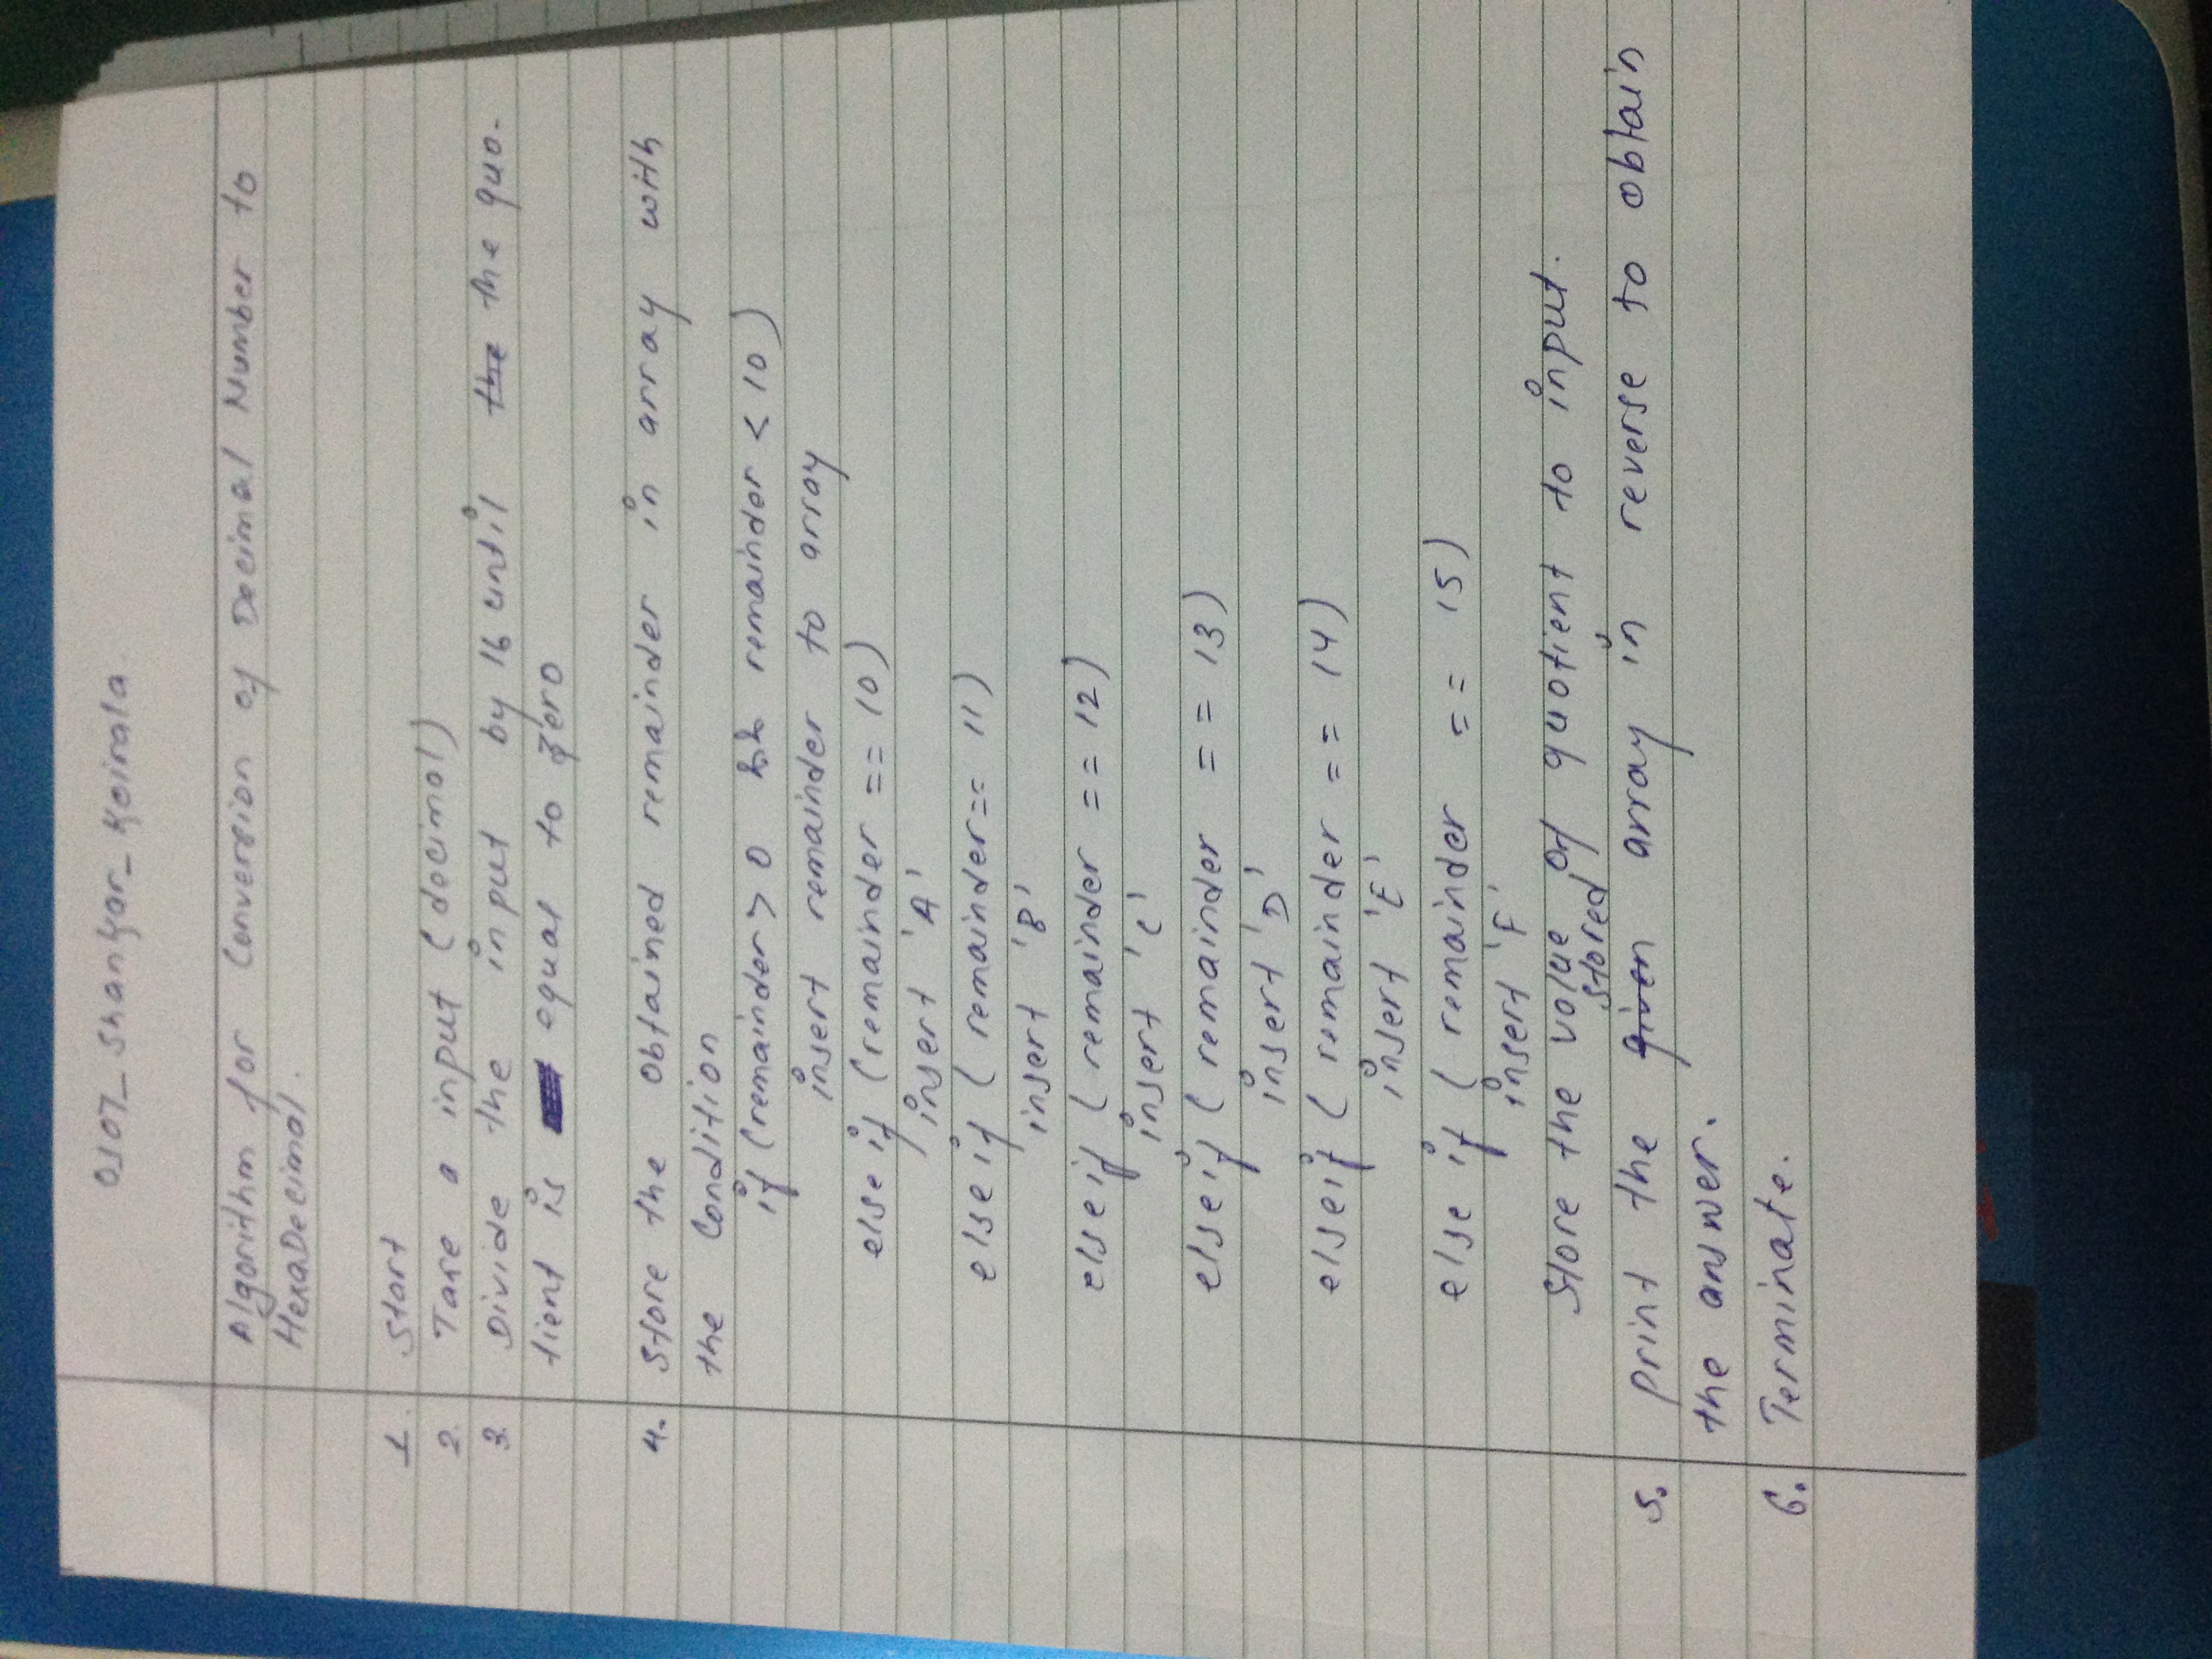 0107_Shankar_Koirala
Algorithm for Conversion of Decimal Number to
HexaDecimal.
1. Start
2. Take a input (decimal)
3. Divide the input by 16 until the the quo-
tient is equal to zero
4. Store the obtained remainder in array with
the Condition
if (remainder > 0 && remainder < 10)
insert remainder to array
else if (remainder == 10)
insert 'A'
else if (remainder == 11)
insert 'B'
else if (remainder == 12)
insert 'C'
else if (remainder == 13)
insert 'D'
else if (remainder == 14)
insert 'E'
else if (remainder == 15)
insert 'F'
Store the value of quotient to input.
stored
5. print the given array in reverse to obtain
the answer.
6. Terminate.